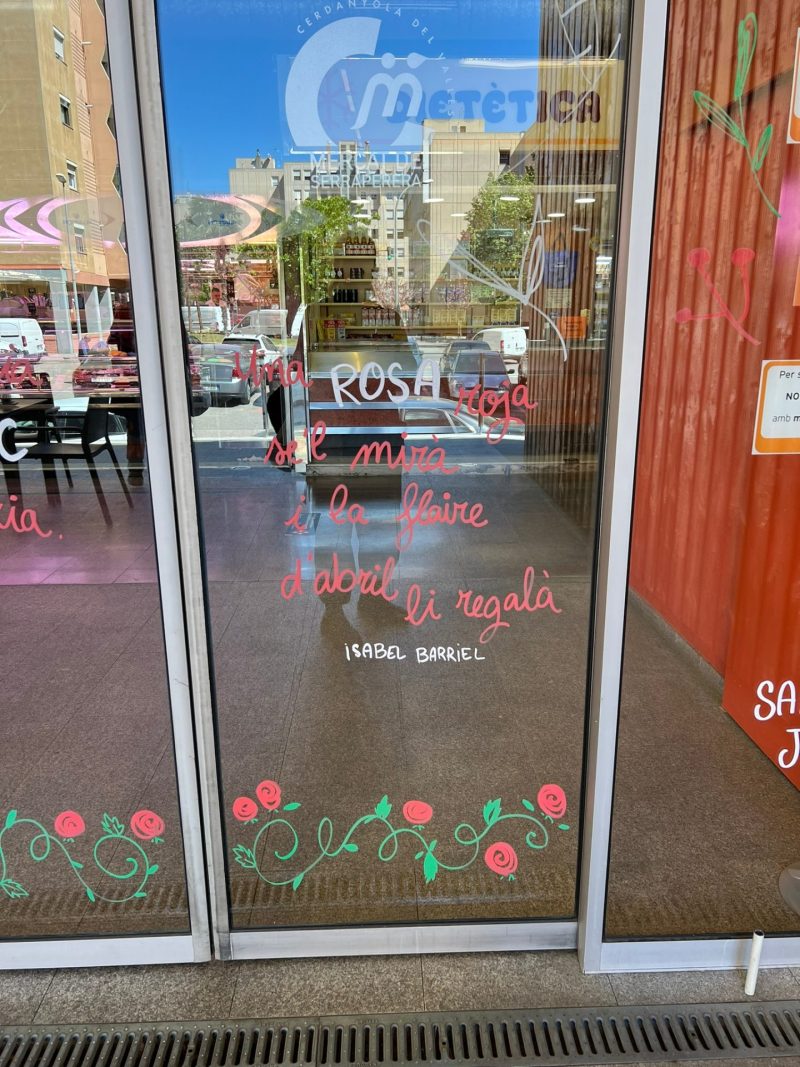 CERDANYOLA DEL
Cm
DIETÈTICA
MERCAT DE
SERRAPERERA
Una ROSA roja
se'l mirà
i la flaire
d'abril li regalà
ISABEL BARRIEL
C
ia.
Per s
NO
amb m
SA
J